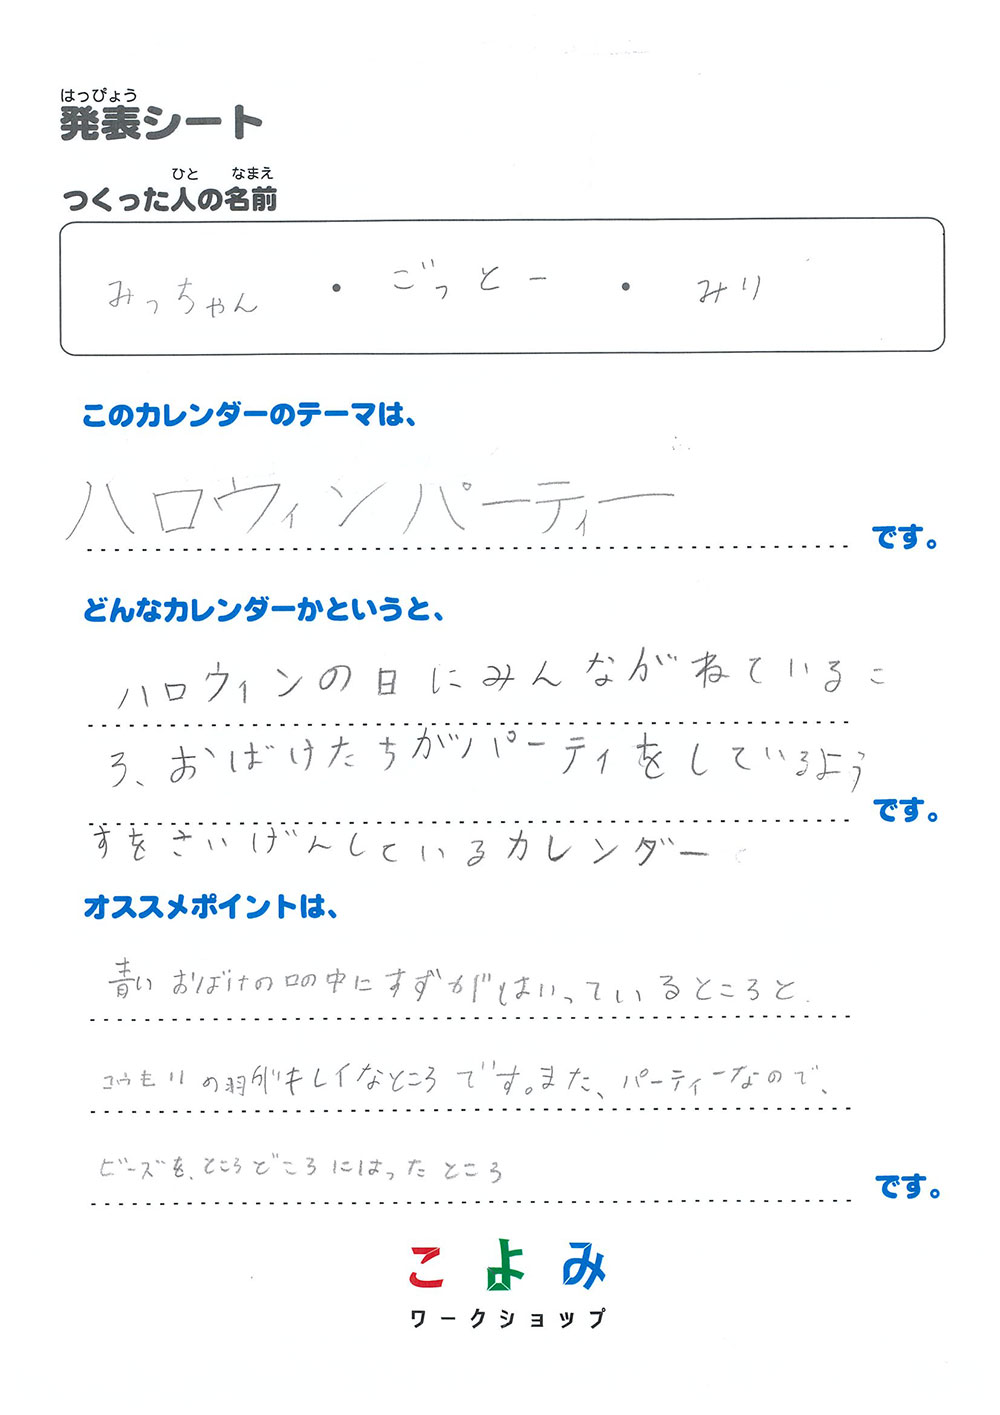 はっぴょう
発表シート
ひと なまえ
つくった人の名前
みっちゃん ・ ごっとー ・ みり
このカレンダーのテーマは、
ハロウィンパーティー
です。
どんなカレンダーかというと、
ハロウィンの日にみんながねているこ
ろ、おばけたちがパーティをしているよう
です。
すをさいげんしているカレンダー
オススメポイントは、
青いおばけの口の中にすずがはいっているところと
コウモリの羽がキレイなところです。また、パーティーなので、
ビーズを、ところどころにはったところ
です。
こよみ
ワークショップ